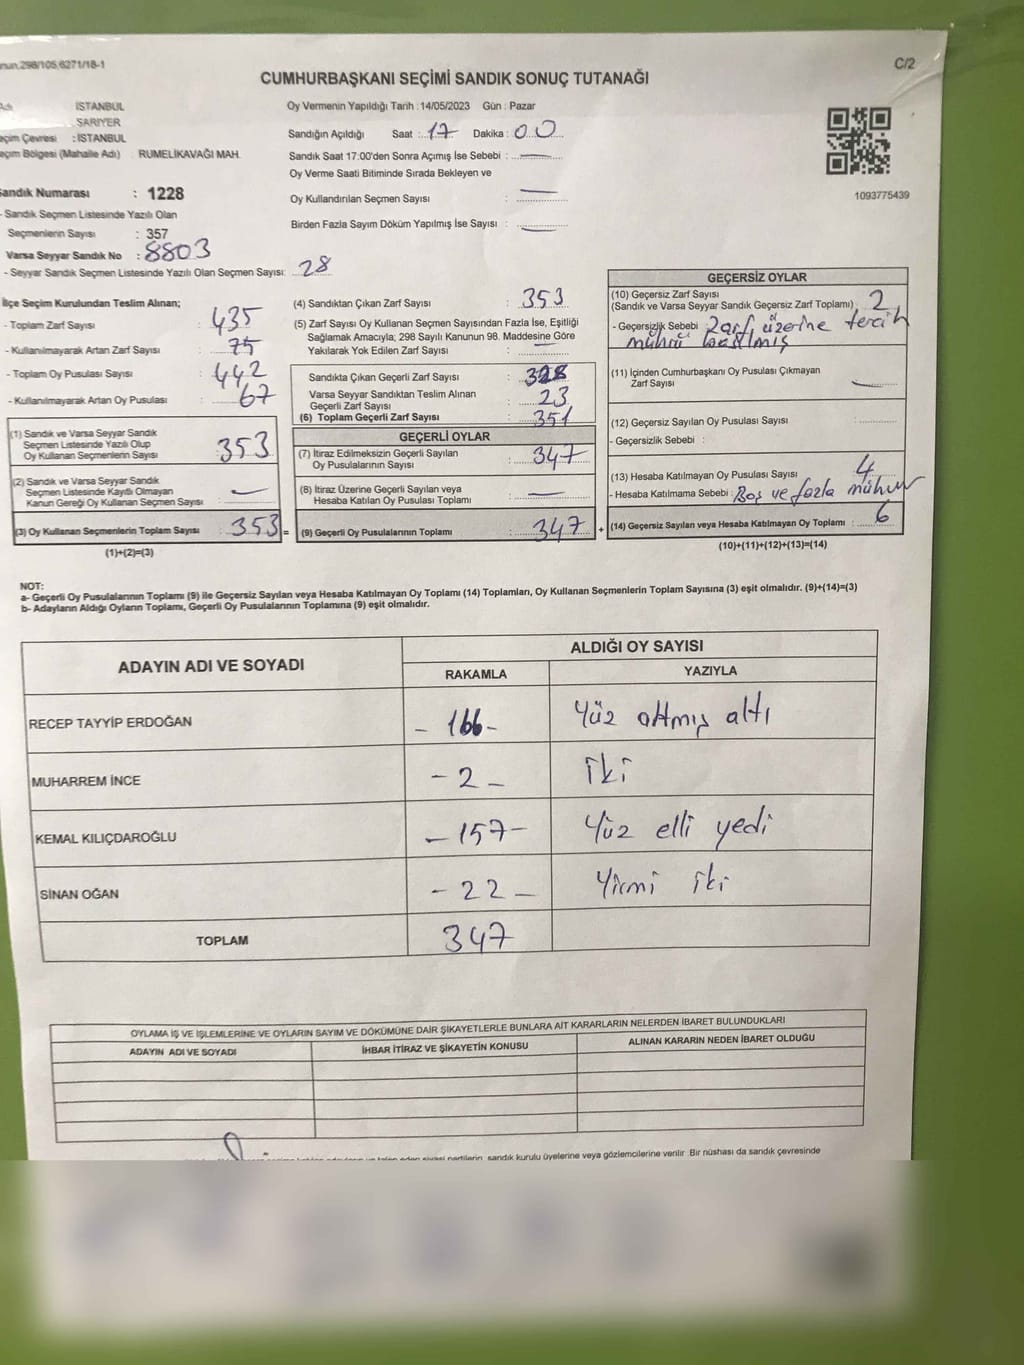 298/105,6271/18-1
C/2
CUMHURBAŞKANI SEÇİMİ SANDIK SONUÇ TUTANAĞI
Adı İSTANBUL
SARIYER
Seçim Çevresi : İSTANBUL
Seçim Bölgesi (Mahalle Adı) : RUMELİKAVAĞI MAH.
Sandık Numarası : 1228
- Sandık Seçmen Listesinde Yazılı Olan
Seçmenlerin Sayısı : 357
Varsa Seyyar Sandık No : 8803
- Seyyar Sandık Seçmen Listesinde Yazılı Olan Seçmen Sayısı: 28
Oy Vermenin Yapıldığı Tarih : 14/05/2023 Gün : Pazar
Sandığın Açıldığı Saat : 17 Dakika : 00
Sandık Saat 17:00'den Sonra Açımış İse Sebebi : —
Oy Verme Saati Bitiminde Sırada Bekleyen ve
Oy Kullandırılan Seçmen Sayısı : —
Birden Fazla Sayım Döküm Yapılmış İse Sayısı : —
1093775439
İlçe Seçim Kurulundan Teslim Alınan;
- Toplam Zarf Sayısı : 435
- Kullanılmayarak Artan Zarf Sayısı : 75
- Toplam Oy Pusulası Sayısı : 442
- Kullanılmayarak Artan Oy Pusulası : 67
(1) Sandık ve Varsa Seyyar Sandık
Seçmen Listesinde Yazılı Olup
Oy Kullanan Seçmenlerin Sayısı : 353
(2) Sandık ve Varsa Seyyar Sandık
Seçmen Listesinde Kayıtlı Olmayan
Kanun Gereği Oy Kullanan Seçmen Sayısı : —
(3) Oy Kullanan Seçmenlerin Toplam Sayısı : 353 =
(1)+(2)=(3)
(4) Sandıktan Çıkan Zarf Sayısı : 353
(5) Zarf Sayısı Oy Kullanan Seçmen Sayısından Fazla İse, Eşitliği
Sağlamak Amacıyla; 298 Sayılı Kanunun 98. Maddesine Göre
Yakılarak Yok Edilen Zarf Sayısı : —
Sandıkta Çıkan Geçerli Zarf Sayısı : 328
Varsa Seyyar Sandıktan Teslim Alınan
Geçerli Zarf Sayısı : 23
(6) Toplam Geçerli Zarf Sayısı : 351
GEÇERLİ OYLAR
(7) İtiraz Edilmeksizin Geçerli Sayılan
Oy Pusulalarının Sayısı : 347
(8) İtiraz Üzerine Geçerli Sayılan veya
Hesaba Katılan Oy Pusulası Toplamı : —
(9) Geçerli Oy Pusulalarının Toplamı : 347 +
GEÇERSİZ OYLAR
(10) Geçersiz Zarf Sayısı
(Sandık ve Varsa Seyyar Sandık Geçersiz Zarf Toplamı) : 2
- Geçersizlik Sebebi : 2 zarf üzerine tercih
mührü basılmış
(11) İçinden Cumhurbaşkanı Oy Pusulası Çıkmayan
Zarf Sayısı —
(12) Geçersiz Sayılan Oy Pusulası Sayısı :
- Geçersizlik Sebebi :
(13) Hesaba Katılmayan Oy Pusulası Sayısı : 4
- Hesaba Katılmama Sebebi : Boş ve fazla mühür
(14) Geçersiz Sayılan veya Hesaba Katılmayan Oy Toplamı : 6
(10)+(11)+(12)+(13)=(14)
NOT:
a- Geçerli Oy Pusulalarının Toplamı (9) ile Geçersiz Sayılan veya Hesaba Katılmayan Oy Toplamı (14) Toplamları, Oy Kullanan Seçmenlerin Toplam Sayısına (3) eşit olmalıdır. (9)+(14)=(3)
b- Adayların Aldığı Oyların Toplamı, Geçerli Oy Pusulalarının Toplamına (9) eşit olmalıdır.
ADAYIN ADI VE SOYADI
ALDIĞI OY SAYISI
RAKAMLA YAZIYLA
RECEP TAYYİP ERDOĞAN - 166 - Yüz altmış altı
MUHARREM İNCE - 2 - iki
KEMAL KILIÇDAROĞLU - 157 - Yüz elli yedi
SİNAN OĞAN - 22 - Yirmi iki
TOPLAM 347
OYLAMA İŞ VE İŞLEMLERİNE VE OYLARIN SAYIM VE DÖKÜMÜNE DAİR ŞİKAYETLERLE BUNLARA AİT KARARLARIN NELERDEN İBARET BULUNDUKLARI
ADAYIN ADI VE SOYADI İHBAR İTİRAZ VE ŞİKAYETİN KONUSU ALINAN KARARIN NEDEN İBARET OLDUĞU
sandık kurulu üyelerine veya gözlemcilerine verilir. Bir nüshası da sandık çevresinde